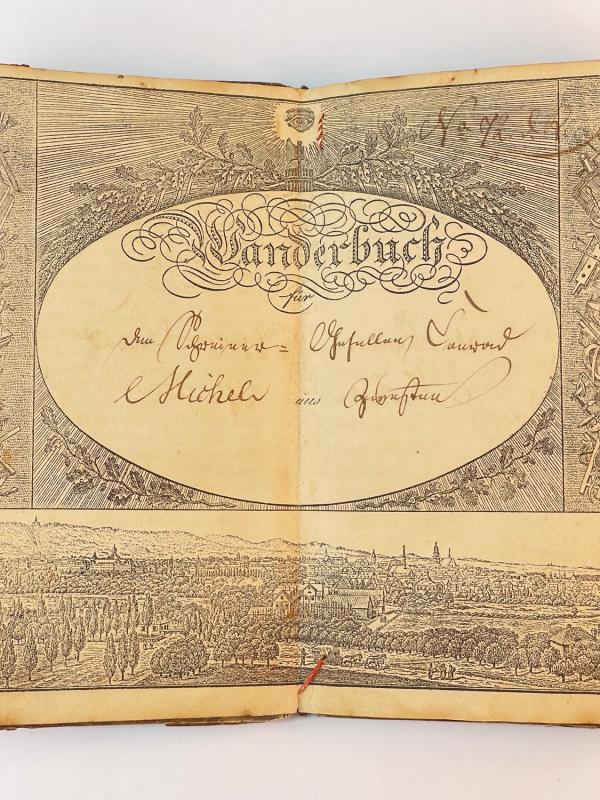 Wanderbuch
für
den Schreiner= Gesellen Conrad
Michel aus Zwesten